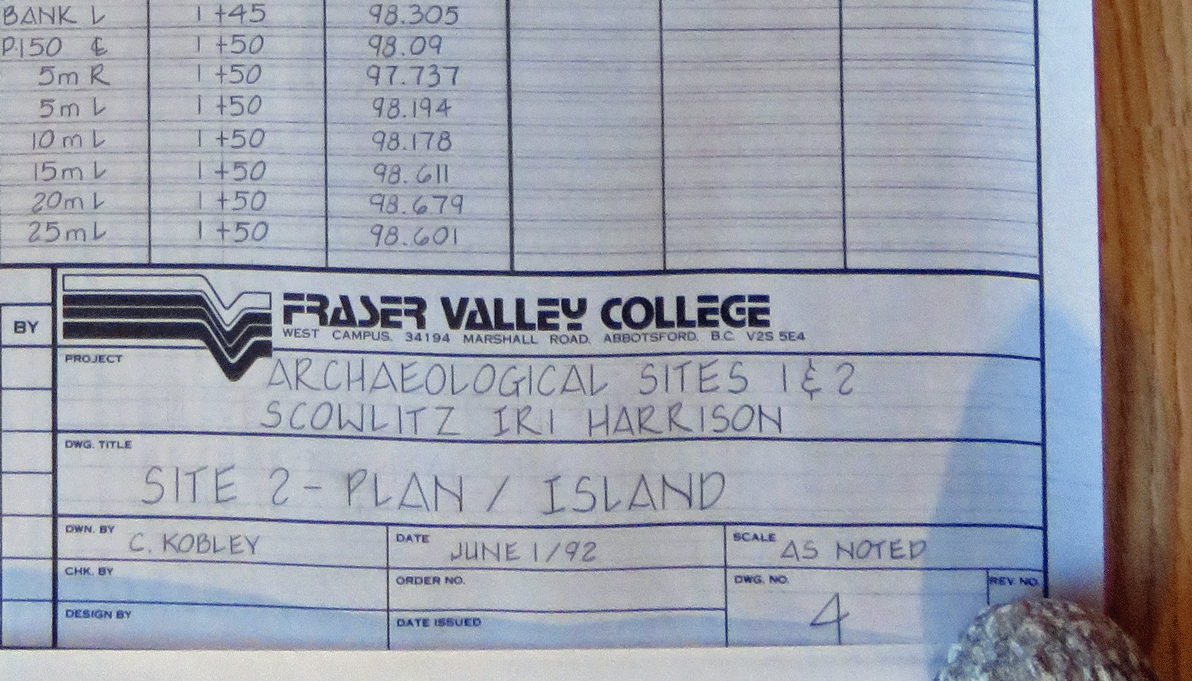 BANK L 1+45 98.305
P150 ℄ 1+50 98.09
5m R 1+50 97.737
5m L 1+50 98.194
10m L 1+50 98.178
15m L 1+50 98.611
20m L 1+50 98.679
25m L 1+50 98.601
BY
FRASER VALLEY COLLEGE
WEST CAMPUS, 34194 MARSHALL ROAD, ABBOTSFORD, B.C. V2S 5E4
PROJECT
ARCHAEOLOGICAL SITES 1 & 2
SCOWLITZ IR1 HARRISON
DWG. TITLE
SITE 2 - PLAN / ISLAND
DWN. BY C. KOBLEY DATE JUNE 1/92 SCALE AS NOTED
CHK. BY ORDER NO. DWG. NO. 4 REV. NO.
DESIGN BY DATE ISSUED